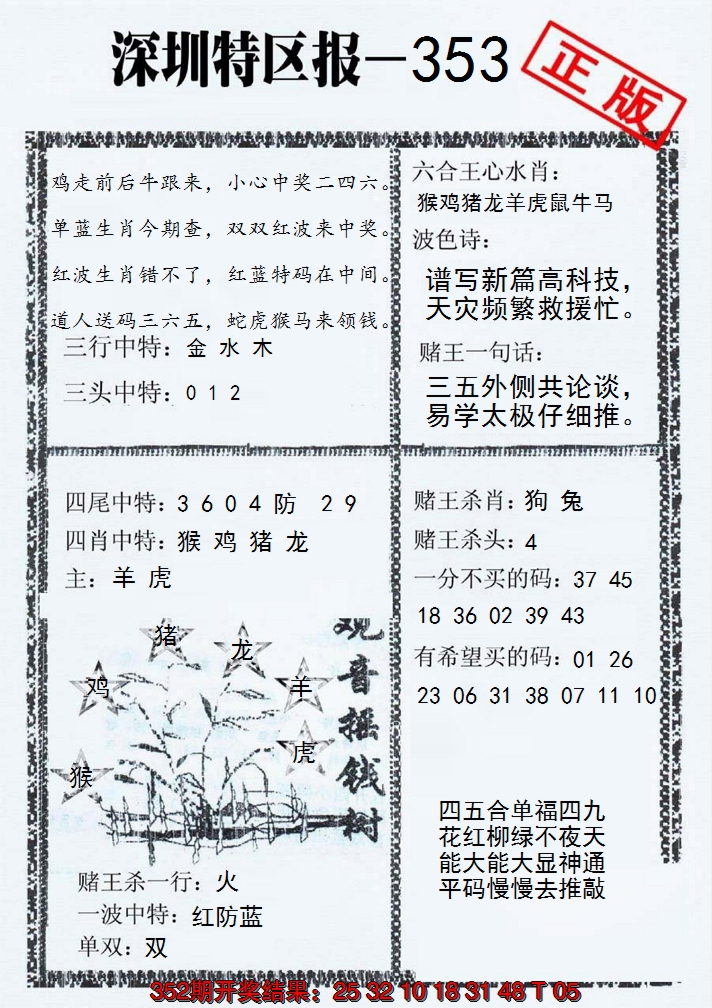 深圳特区报—353
正版
鸡走前后牛跟来，小心中奖二四六。
单蓝生肖今期查，双双红波来中奖。
红波生肖错不了，红蓝特码在中间。
道人送码三六五，蛇虎猴马来领钱。
三行中特：金 水 木
三头中特：0 1 2
六合王心水肖：
猴鸡猪龙羊虎鼠牛马
波色诗：
谱写新篇高科技，
天灾频繁救援忙。
赌王一句话：
三五外侧共论谈，
易学太极仔细推。
四尾中特：3 6 0 4 防 2 9
四肖中特：猴 鸡 猪 龙
主：羊 虎
猪
龙
鸡
羊
虎
猴
观音摇钱树
赌王杀一行：火
一波中特：红防蓝
单双：双
赌王杀肖：狗 兔
赌王杀头：4
一分不买的码：37 45
18 36 02 39 43
有希望买的码：01 26
23 06 31 38 07 11 10
四五合单福四九
花红柳绿不夜天
能大能大显神通
平码慢慢去推敲
352期开奖结果：25 32 10 18 31 48 T 05